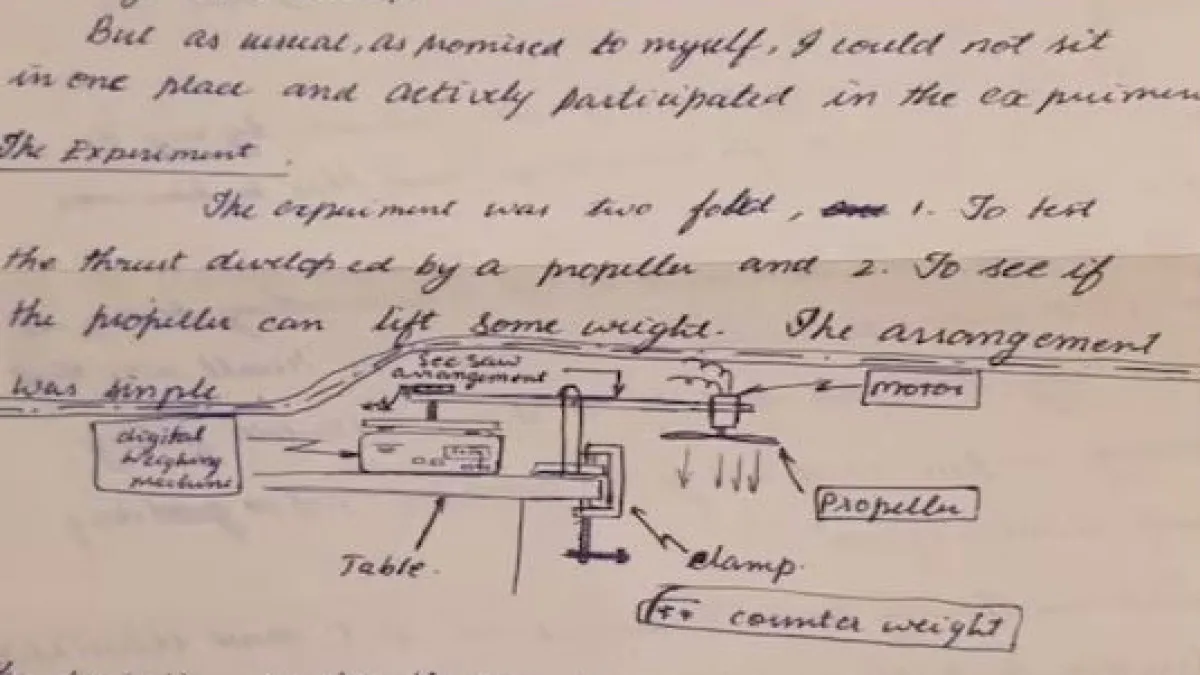 But as usual, as promised to myself, I could not sit
in one place and actively participated in the experimen
The Experiment.
The experiment was two fold, 1. To test
the thrust developed by a propeller and 2. To see if
the propeller can lift some weight. The arrangement
was simple
See Saw
arrangement
MOTOR
digital
weighing
machine
Propeller
Table.
clamp.
counter weight